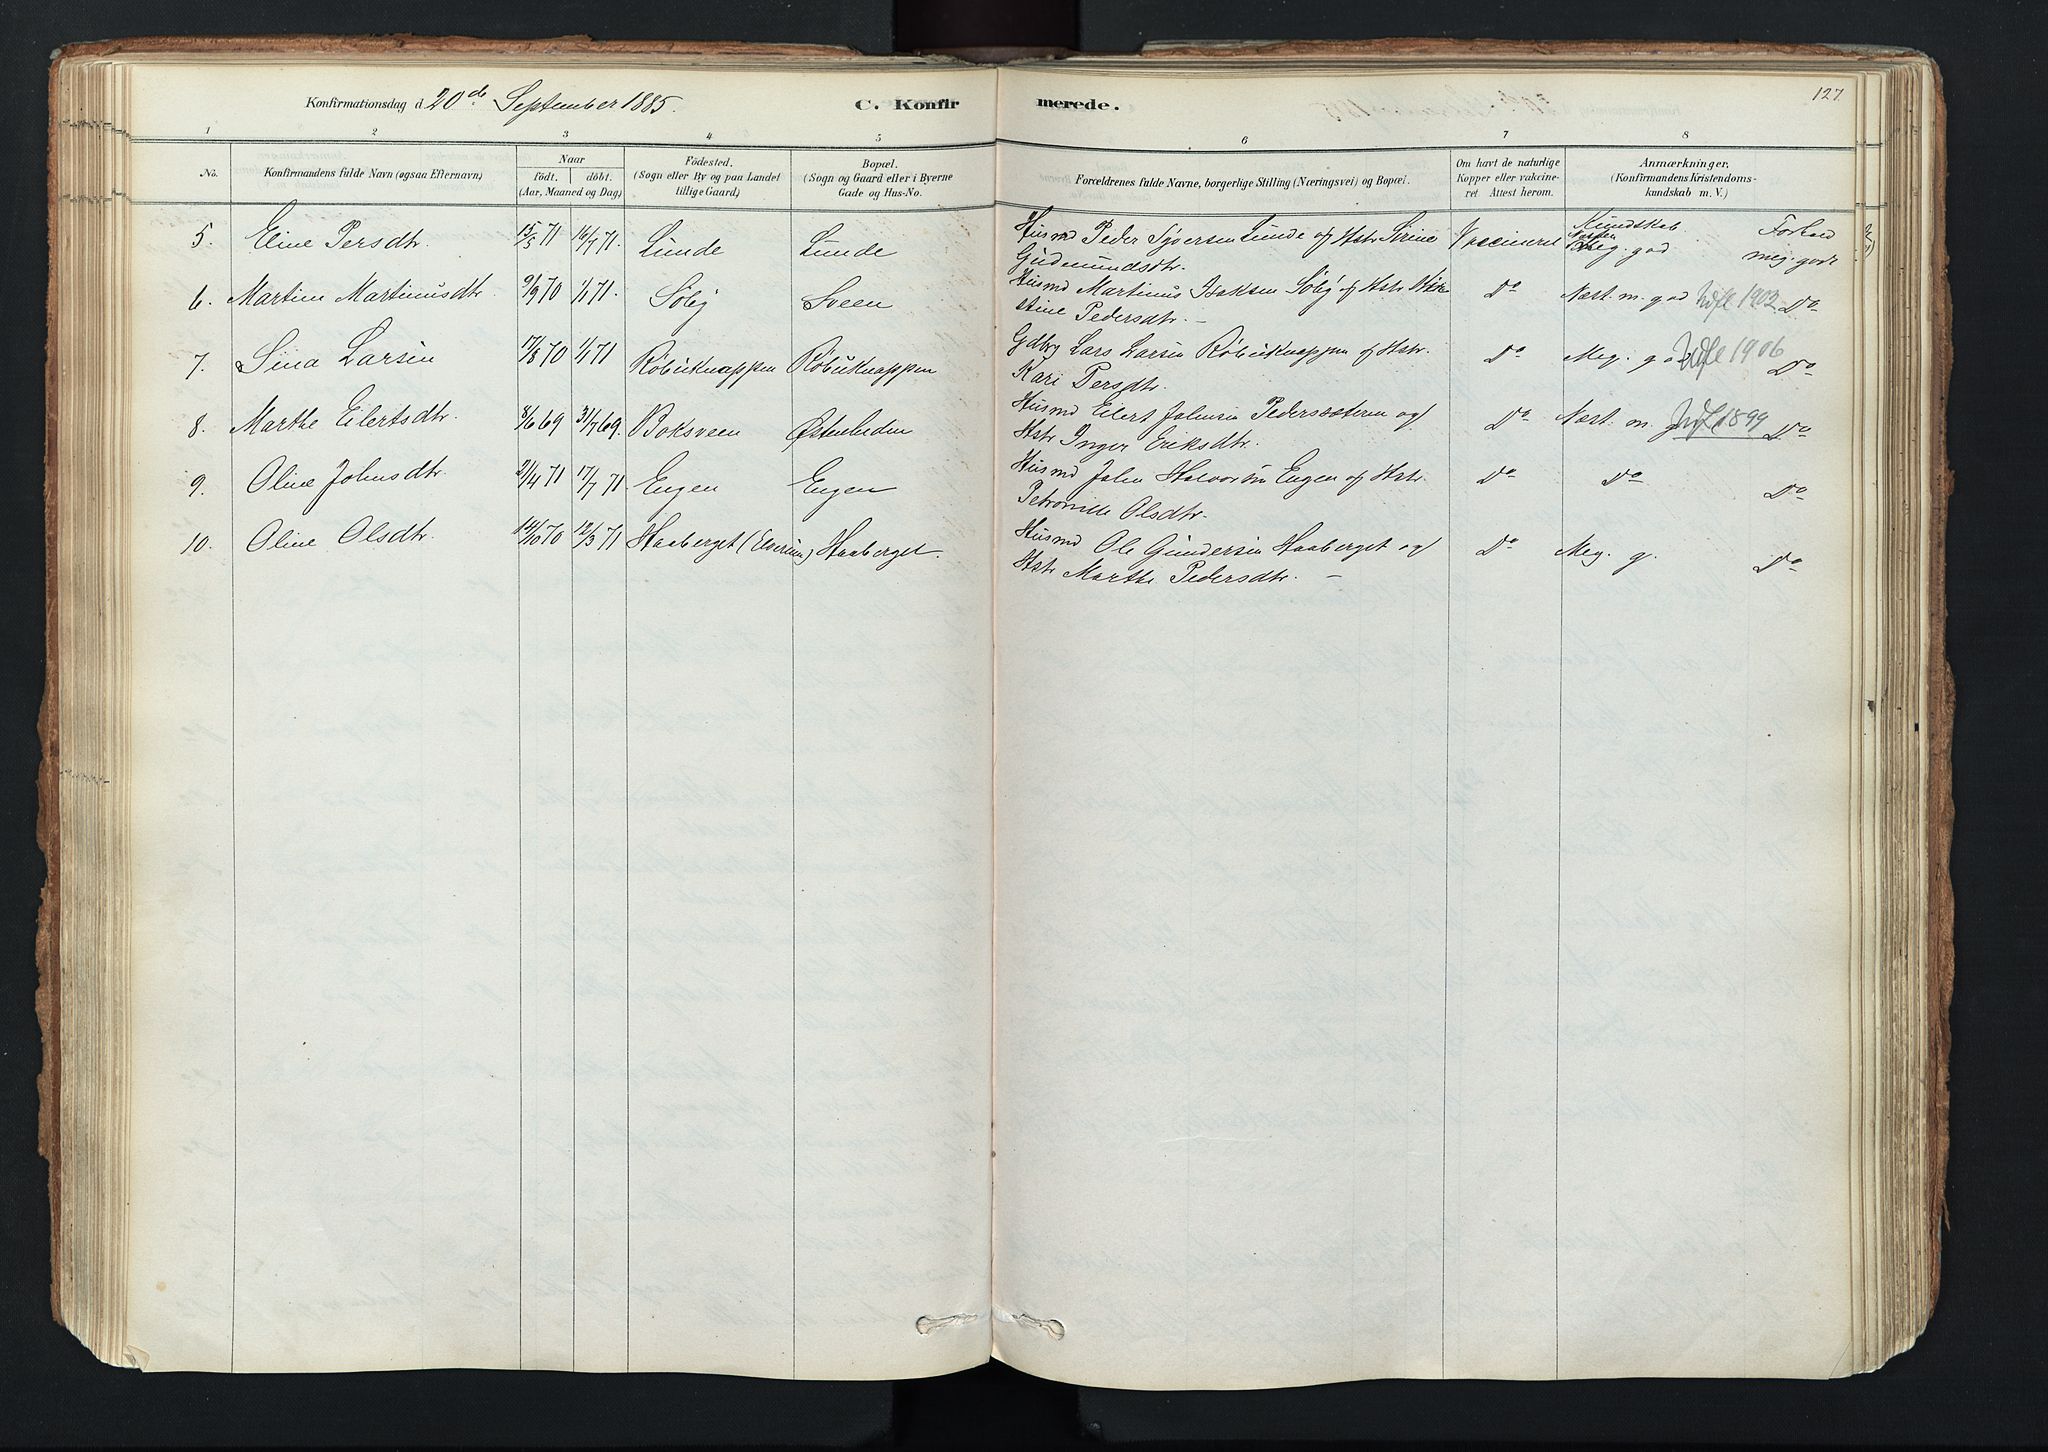 Konfirmationsdag d. 20de September 1885. C. Konfirmerede. 127.
1 2 3 4 5 6 7 8
No. Konfirmandens fulde Navn (ogsaa Efternavn) Naar födt. döbt. (Aar, Maaned og Dag) Födested. (Sogn eller By og paa Landet tillige Gaard) Bopæl. (Sogn og Gaard eller i Byerne Gade og Hus-No. Forældrenes fulde Navne, borgerlige Stilling (Næringsvei) og Bopæl. Om havt de naturlige Kopper eller vakcineret Attest herom. Anmærkninger. (Konfirmandens Kristendomskundskab m. V.)
5. Eline Persdtr. 15/5 71 16/7 71. Lunde Lunde Husmd Peder Syversen Lunde og Hstr Sirine Vaccineret Kundskab Næsten Meg. god Forhold meg. godt
Gudmundsdtr.
6. Martine Martinusdtr 9/9 70 1/1 71. Söby Sveen Husmd Martinus Isaksen Söby og Hstr Do Næst m. god Udfl 1903 Do
stine Pedersdtr. –
7. Sina Larsen 17/8 70 1/1 71 Röbuknappen Röbuknappen Gdbr Lars Larsen Röbuknappen og Hstr. Do Meg. Udfl 1906 Do
Kari Persdtr.
8. Marthe Eilertsdtr. 8/6 69 31/7 69. Boksveen Østenheden Husmd Eilert Johnsen Pedersæteren og Do Næst. m. g Udfl 1899 Do
Hstr Inger Eriksdtr.
9. Oline Johnsdtr 21/4 71 17/7 71 Engen Engen Husmd John Halvorsen Engen og Hstr. Do Do Do
Petronille Olsdtr.
10. Oline Olsdtr. 14/10 70 12/3 71 Haaberget (Elverum) Haaberget. Husmd Ole Gundersen Haaberget og Do Meg. g. Do
Hstr Marthe Pedersdtr. –